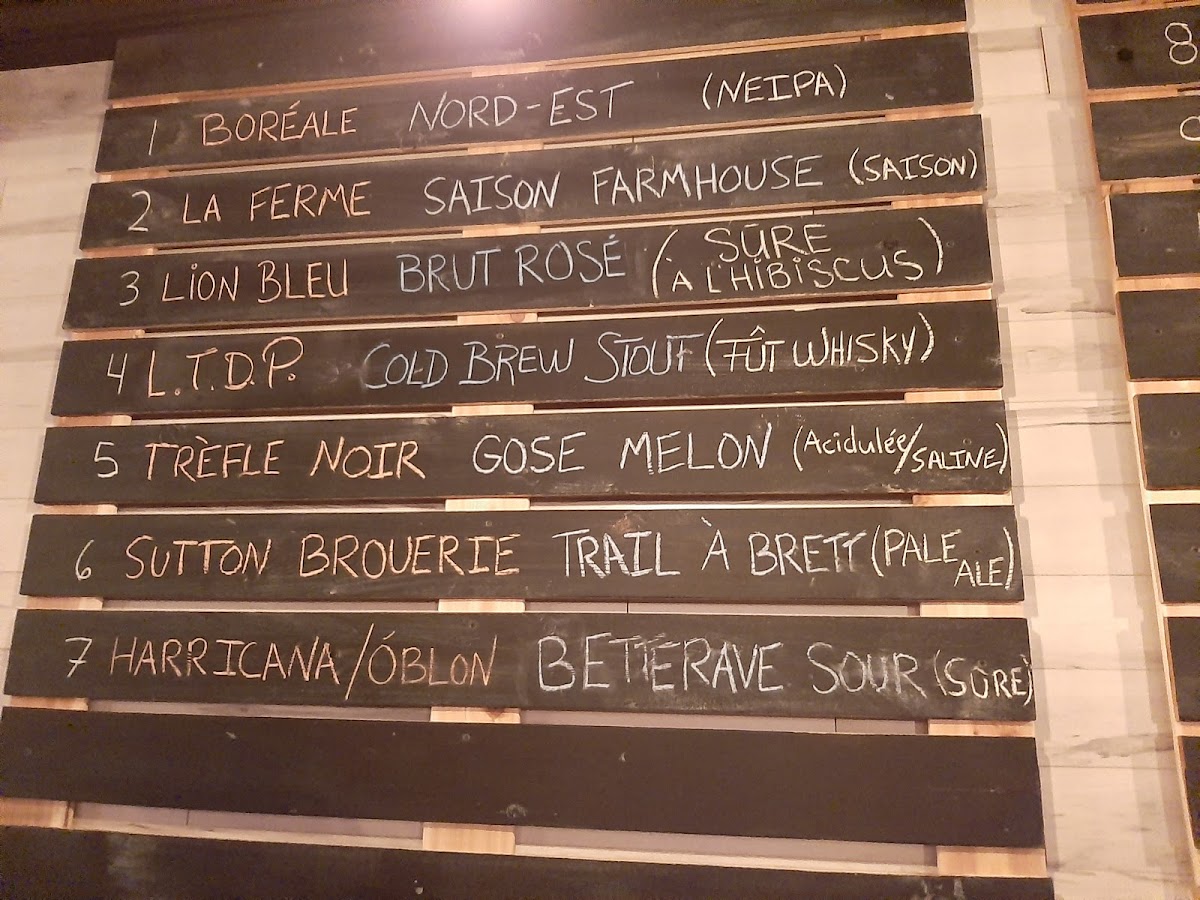 1 BORÉALE NORD-EST (NEIPA)
2 LA FERME SAISON FARMHOUSE (SAISON)
3 LION BLEU BRUT ROSÉ (SÛRE
À L'HIBISCUS)
4 L.T.D.P. COLD BREW STOUT (FÛT WHISKY)
5 TRÈFLE NOIR GOSE MELON (Acidulée/
SALINE)
6 SUTTON BROUERIE TRAIL À BRETT (PALE
ALE)
7 HARRICANA/ÓBLON BETTERAVE SOUR (SÛRE)
8